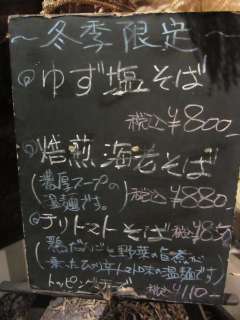 ～冬季限定～
ゆず塩そば
税込¥800-
焙煎海老そば
(濃厚スープの
温麺です。)
税込¥880-
チリトマトそば 税込¥850
(鶏だんごと野菜の旨煮が
乗ったピリ辛トマト味の温麺です)
トッピングチーズ 税込¥110-